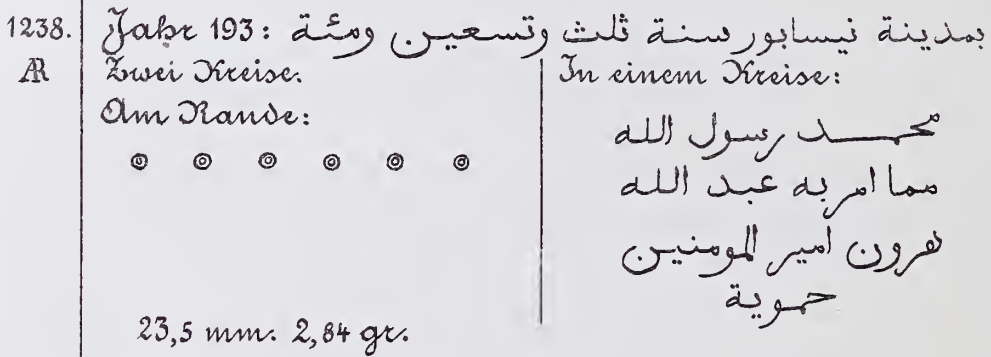 1238. Jahr 193: بمدينة نيسابور سنة ثلث وتسعين ومئة
AR Zwei Kreise.
Am Rande:
◎ ◎ ◎ ◎ ◎ ◎
23,5 mm. 2,84 gr.
In einem Kreise:
محمد رسول الله
مما امر به عبد الله
هرون امير المومنين
حموية